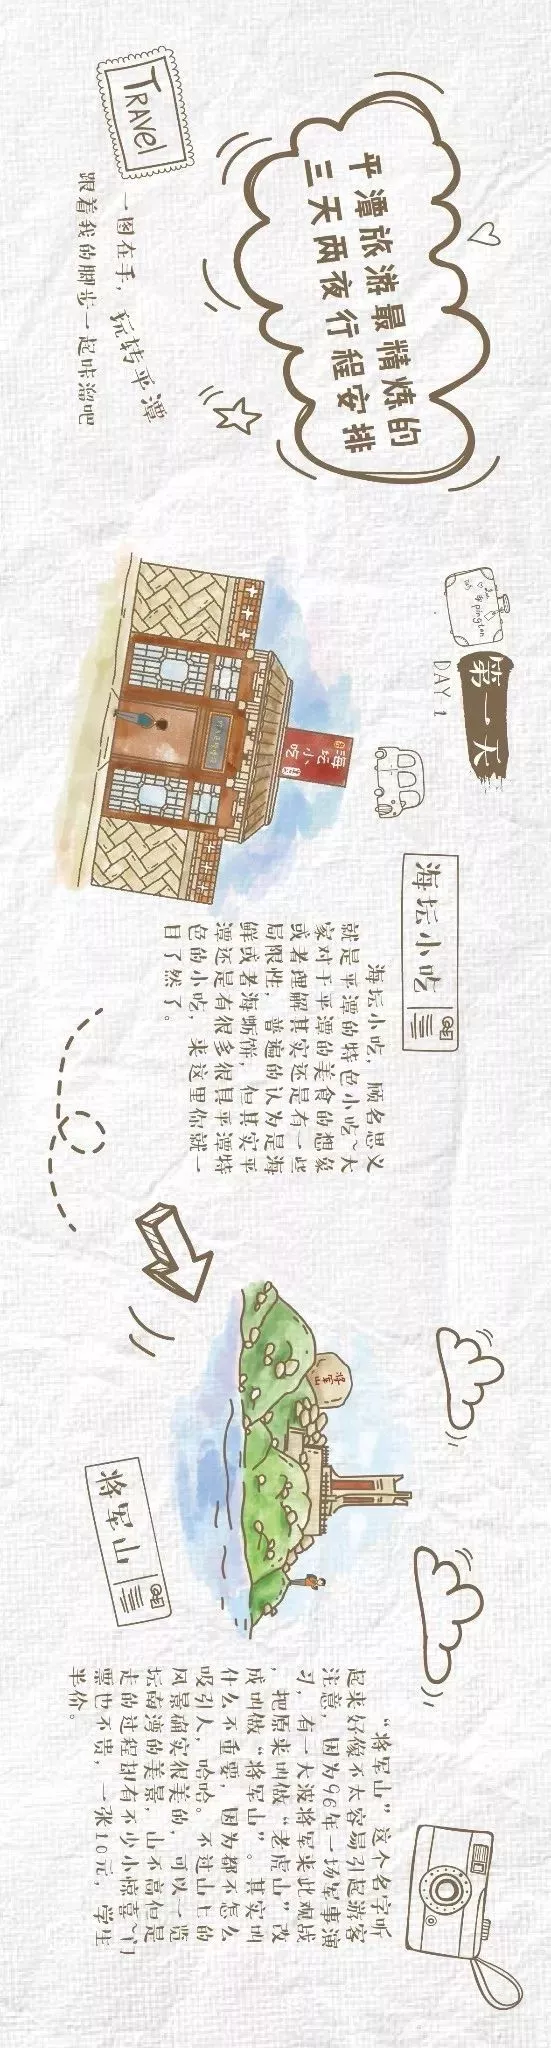 TRAVEL
平潭旅游最精炼的
三天两夜行程安排
一图在手，玩转平潭
跟着我的脚步一起咔溜吧
pingtan
第一天
DAY 1
海坛小吃
海坛小吃
海坛小吃，顾名思义
就是平潭的特色小吃~大
家对于平潭的美食的想象
或者理解其实还是有一些
局限性，普遍的认为是海
鲜或者海蛎饼，但其实平
潭还是有很多很具平潭特
色的小吃，来这里你就一
目了然了。
将军山
将军山
“将军山”这个名字听
起来好像不太容易引起游客
注意，因为96年一场军事演
习，有一大波将军来此观战
，把原来叫做“老虎山”改
成叫做“将军山”。其实叫
什么不重要，因为都不怎么
吸引人，哈哈。不过山上的
风景确实很美的，可以一览
坛南湾的美景，山不高但是
走的过程拥有不少小惊喜~门
票也不贵，一张10元，学生
半价。